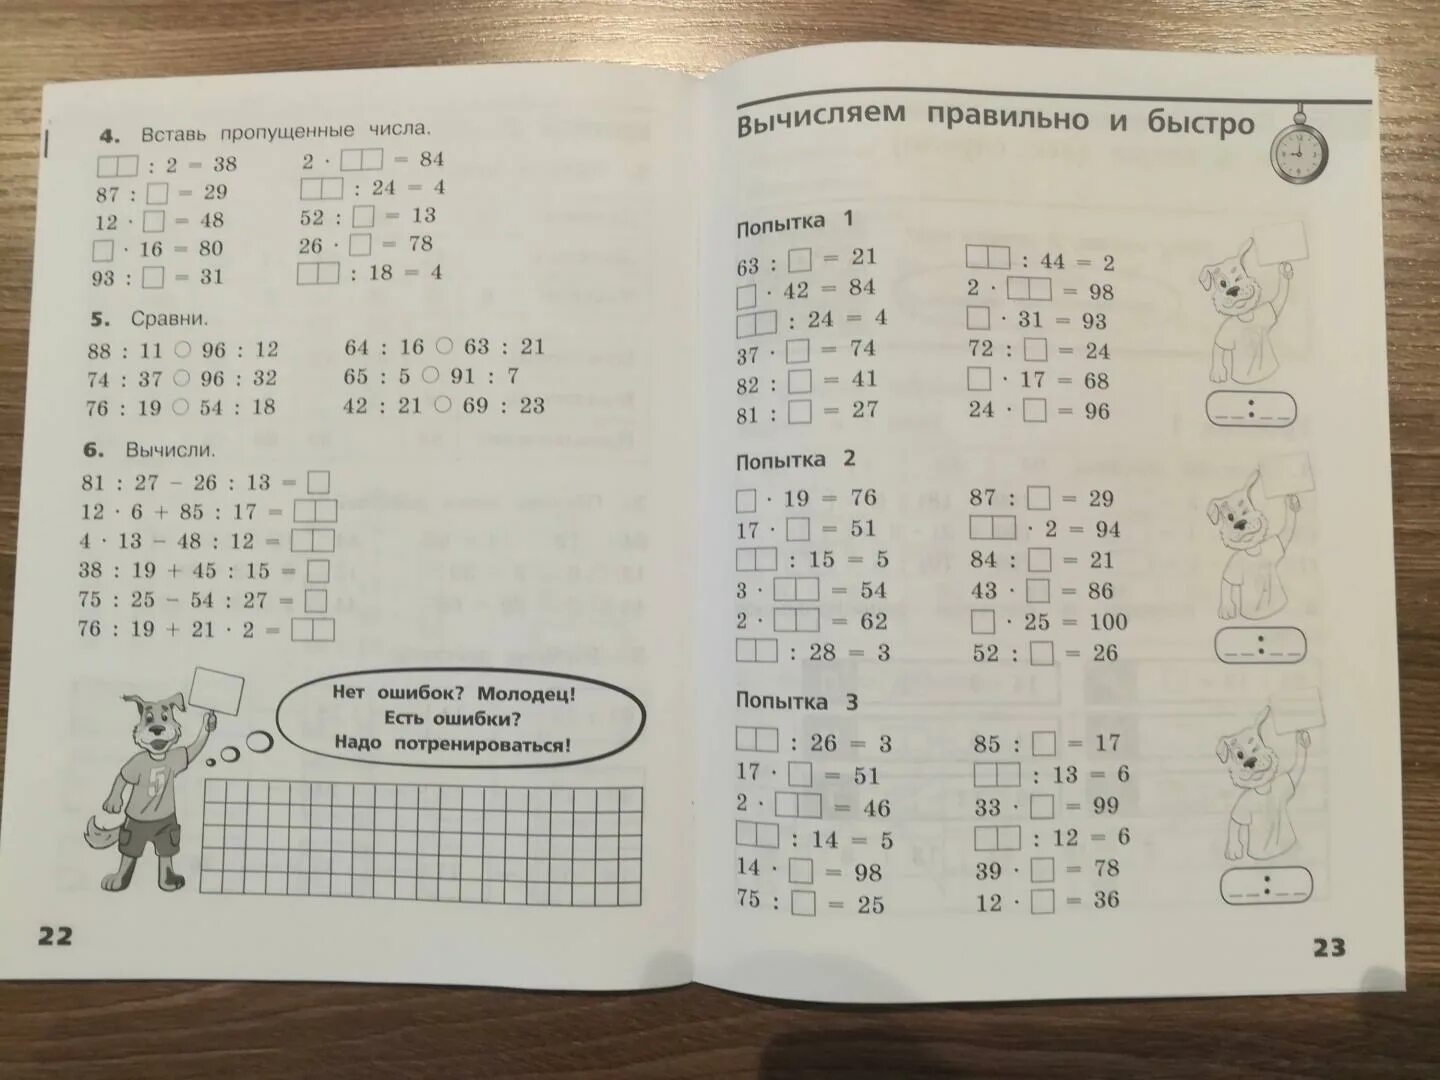 4. Вставь пропущенные числа.
□□ : 2 = 38
87 : □ = 29
12 · □ = 48
□ · 16 = 80
93 : □ = 31
2 · □□ = 84
□□ : 24 = 4
52 : □ = 13
26 · □ = 78
□□ : 18 = 4
5. Сравни.
88 : 11 ○ 96 : 12
74 : 37 ○ 96 : 32
76 : 19 ○ 54 : 18
64 : 16 ○ 63 : 21
65 : 5 ○ 91 : 7
42 : 21 ○ 69 : 23
6. Вычисли.
81 : 27 – 26 : 13 = □
12 · 6 + 85 : 17 = □□
4 · 13 – 48 : 12 = □□
38 : 19 + 45 : 15 = □
75 : 25 – 54 : 27 = □
76 : 19 + 21 · 2 = □□
Нет ошибок? Молодец!
Есть ошибки?
Надо потренироваться!
5
22
Вычисляем правильно и быстро
Попытка 1
63 : □ = 21
□ · 42 = 84
□□ : 24 = 4
37 · □ = 74
82 : □ = 41
81 : □ = 27
□□ : 44 = 2
2 · □□ = 98
□ · 31 = 93
72 : □ = 24
□ · 17 = 68
24 · □ = 96
__ : __
Попытка 2
□ · 19 = 76
17 · □ = 51
□□ : 15 = 5
3 · □□ = 54
2 · □□ = 62
□□ : 28 = 3
87 : □ = 29
□□ · 2 = 94
84 : □ = 21
43 · □ = 86
□ · 25 = 100
52 : □ = 26
__ : __
Попытка 3
□□ : 26 = 3
17 · □ = 51
2 · □□ = 46
□□ : 14 = 5
14 · □ = 98
75 : □ = 25
85 : □ = 17
□□ : 13 = 6
33 · □ = 99
□□ : 12 = 6
39 · □ = 78
12 · □ = 36
__ : __
23